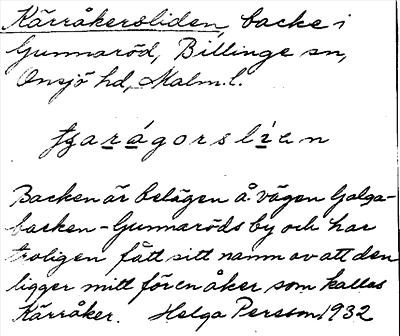 Kärråkersliden, backe i
Gunnaröd, Billinge sn,
Onsjö hd, Malm.l.
Backen är belägen å vägen Galga-
backen - Gunnaröds by och har
troligen fått sitt namn av att den
ligger mitt för en åker som kallas
Kärråker. Helga Persson 1932